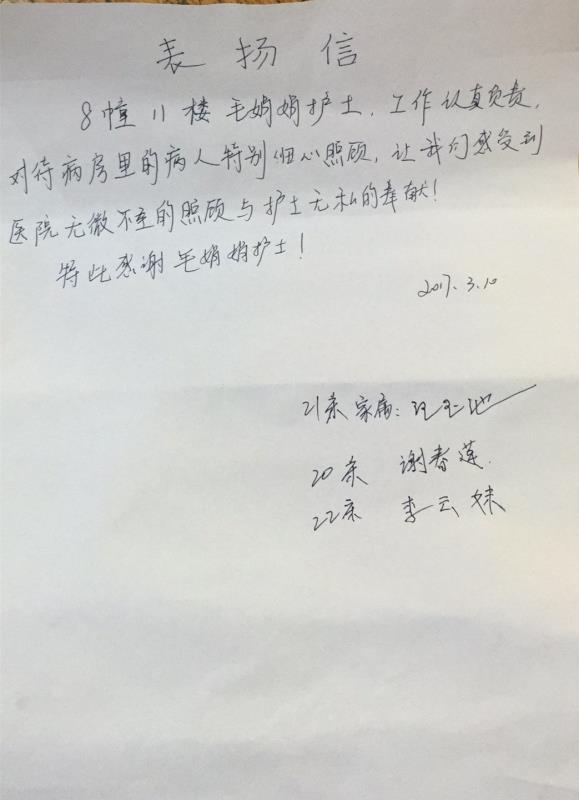 表扬信
8幢11楼毛娟娟护士，工作认真负责，
对待病房里的病人特别细心照顾，让我们感受到
医院无微不至的照顾与护士无私的奉献！
特此感谢毛娟娟护士！
2017.3.10
21床家属：
20床 谢春莲
22床 李云妹